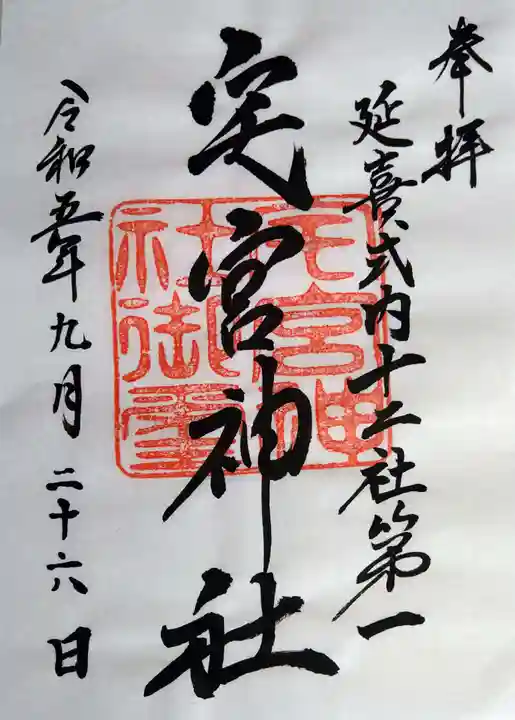 奉拝
延喜式内十二社第一
宅宮神社
令和五年九月二十六日
宅宮神
社御璽